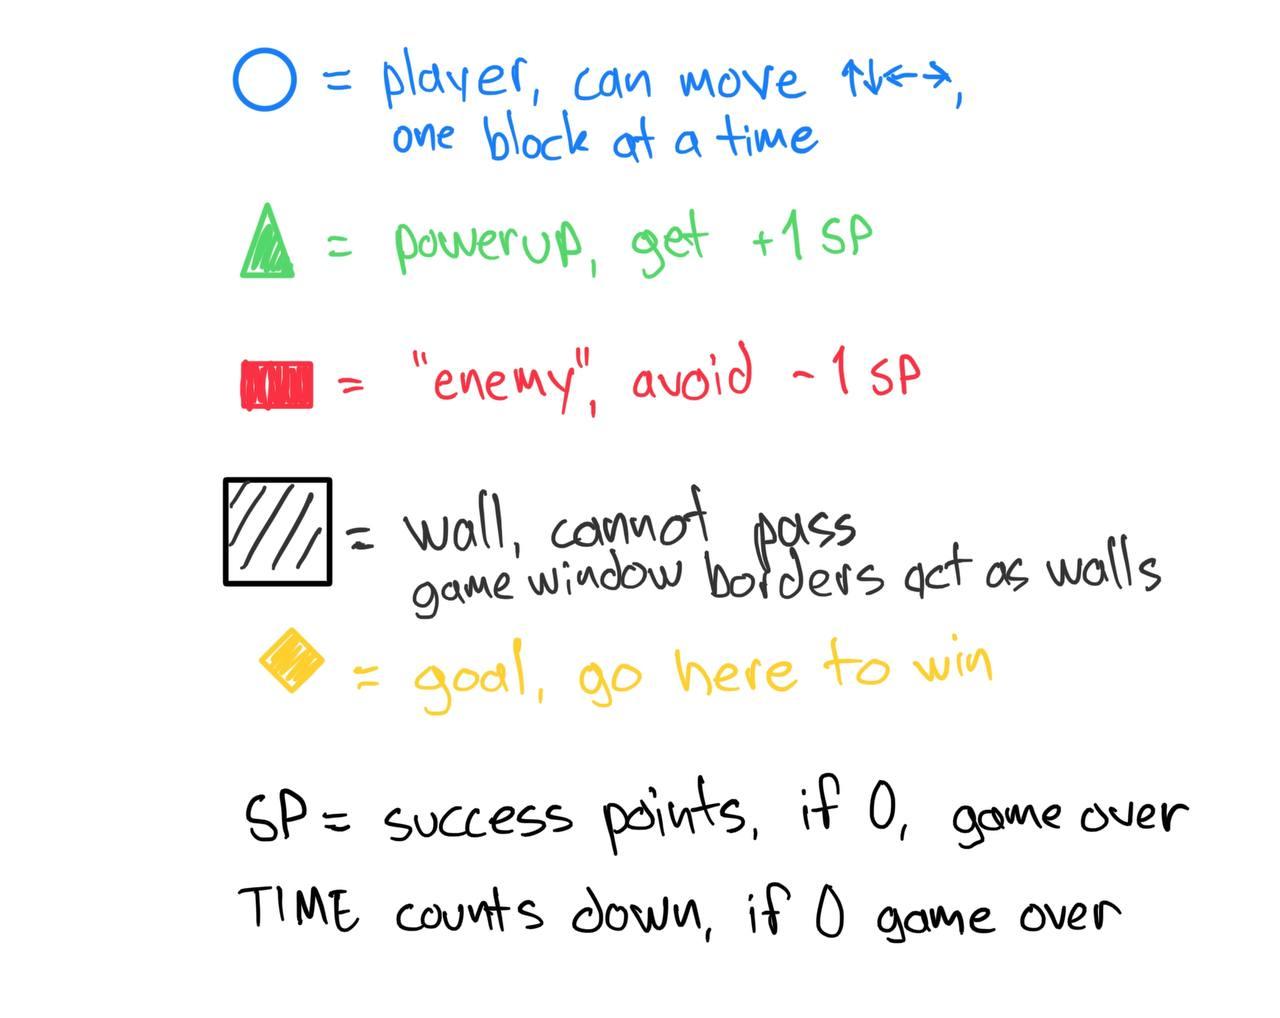 = player, can move ↑↓←→,
one block at a time
= powerup, get +1 SP
= "enemy", avoid -1 SP
= wall, cannot pass
game window borders act as walls
= goal, go here to win
SP = success points, if 0, game over
TIME counts down, if 0 game over